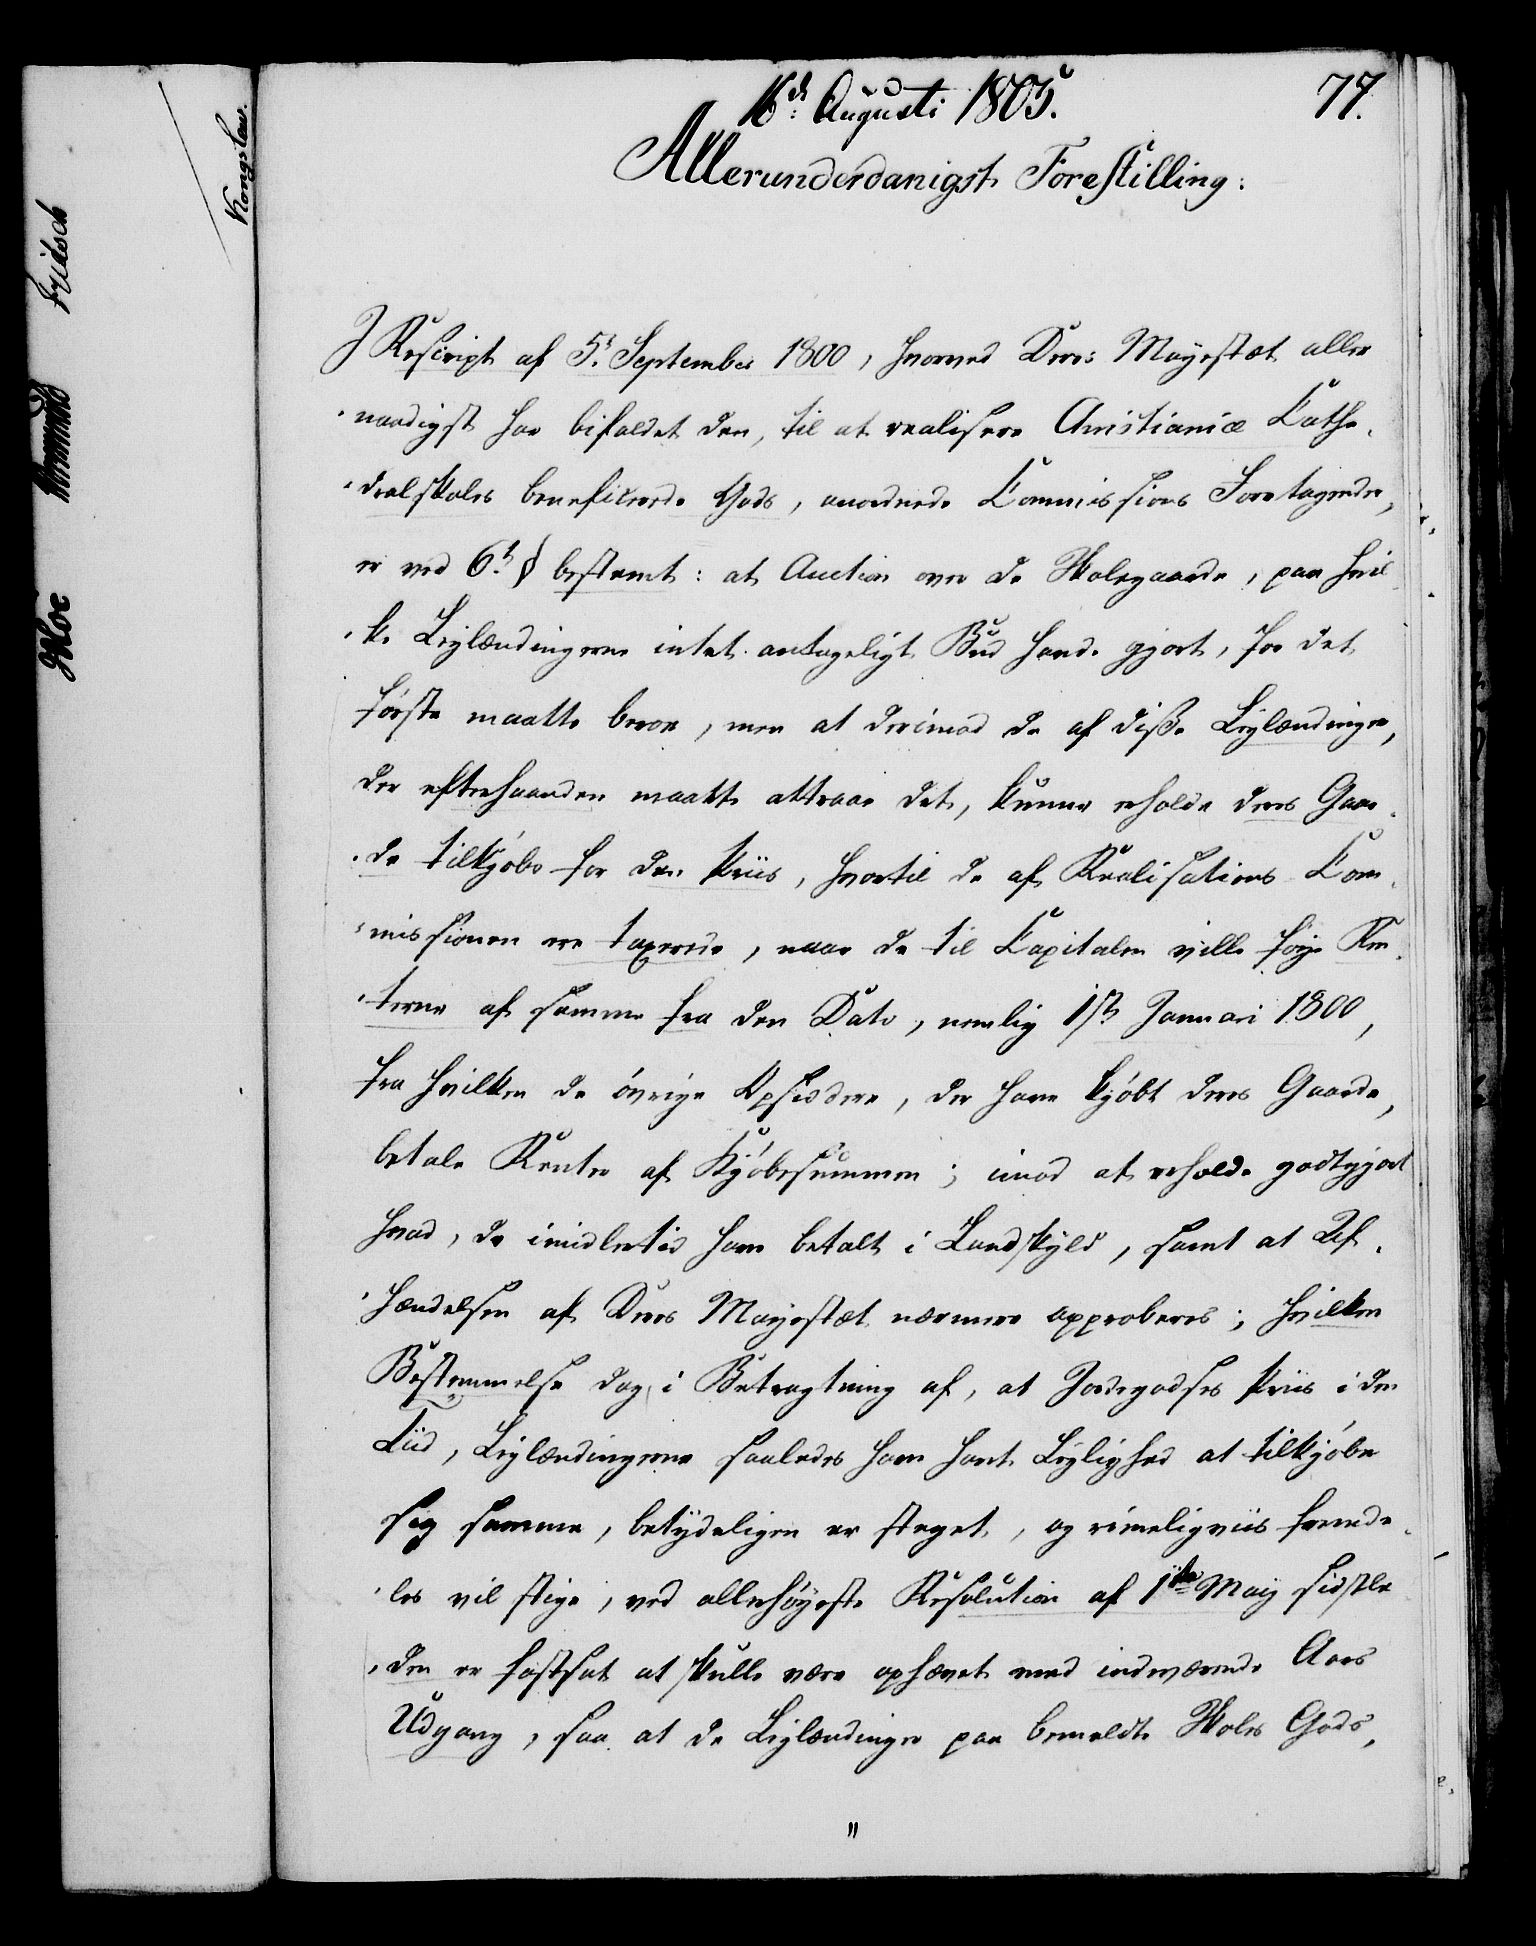 16de Augusti 1805.
77.
Allerunderdanigst Forestilling:
I Rescript af 5t. September 1800, hvorved Deres Mayestæt aller
naadigst har bifaldet den, til at realisere Christianiæ Cathe
dralskoles beneficerede Gods, anordnede Commissions Foretagender,
er ved 6t. § bestemt: at Auction over de Skolegaarde, paa hvil
ke Leylændingerne intet antageligt Bud havde gjort, for det
første maatte beroe, men at derimod de af disse Leylændinger,
der efterhaanden maatte attraae det, kunne erholde deres Gaar
de tilkjøbs for den Priis, hvortil de af Realisations Com
missionen ere taxerede, naar de til Capitalen ville føye Ren
terne af samme fra den Dato, nemlig 1ste Januari 1800,
fra hvilken de øvrige Opsiddere, der have kjøbt deres Gaarde,
betale Renter af Kjøbesummen; imod at erholde godtgjort
hvad, de imidlertid have betalt i Landskyld, samt at Af
hændelsen af Deres Mayestæt nærmere approberes; hvilken
Bestemmelse dog, i Betragtning af, at Jordegodses Priis i den
Tiid, Leylændingerne saaledes have havt Leylighed at tilkjøbe
sig samme, betydeligen er steget, og rimeligviis fremde
les vil stige, ved allerhøyeste Resolution af 1ste May sidstle
den er fastsat at skulle være ophævet med indeværende Aars
Udgang, saa at de Leylændinger paa bemeldte Skoles Gods,
"
Kongslew.
Hammond
Moe